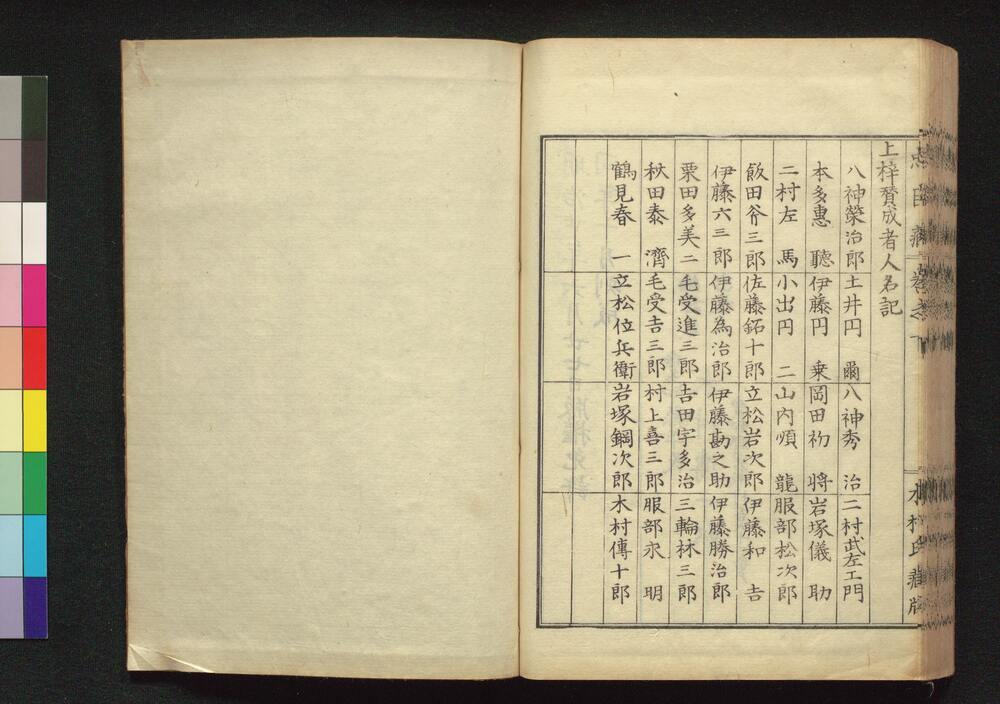 上梓賛成者人名記
八神榮治郎 土井円爾 八神秀治 二村武左エ門
本多惠聽 伊藤円乗 岡田初將 岩塚儀助
二村左馬 小出円二 山内順龍 服部松次郎
飯田谷三郎 佐藤鉐十郎 立松岩次郎 伊藤和吉
伊藤六三郎 伊藤為治郎 伊藤勘之助 伊藤勝治郎
栗田多美二 毛受進三郎 吉田宇多治 三輪林三郎
秋田泰濟 毛受吉三郎 村上喜三郎 服部永明
鶴見春一 立松位兵衞 岩塚鋼次郎 木村傳十郎